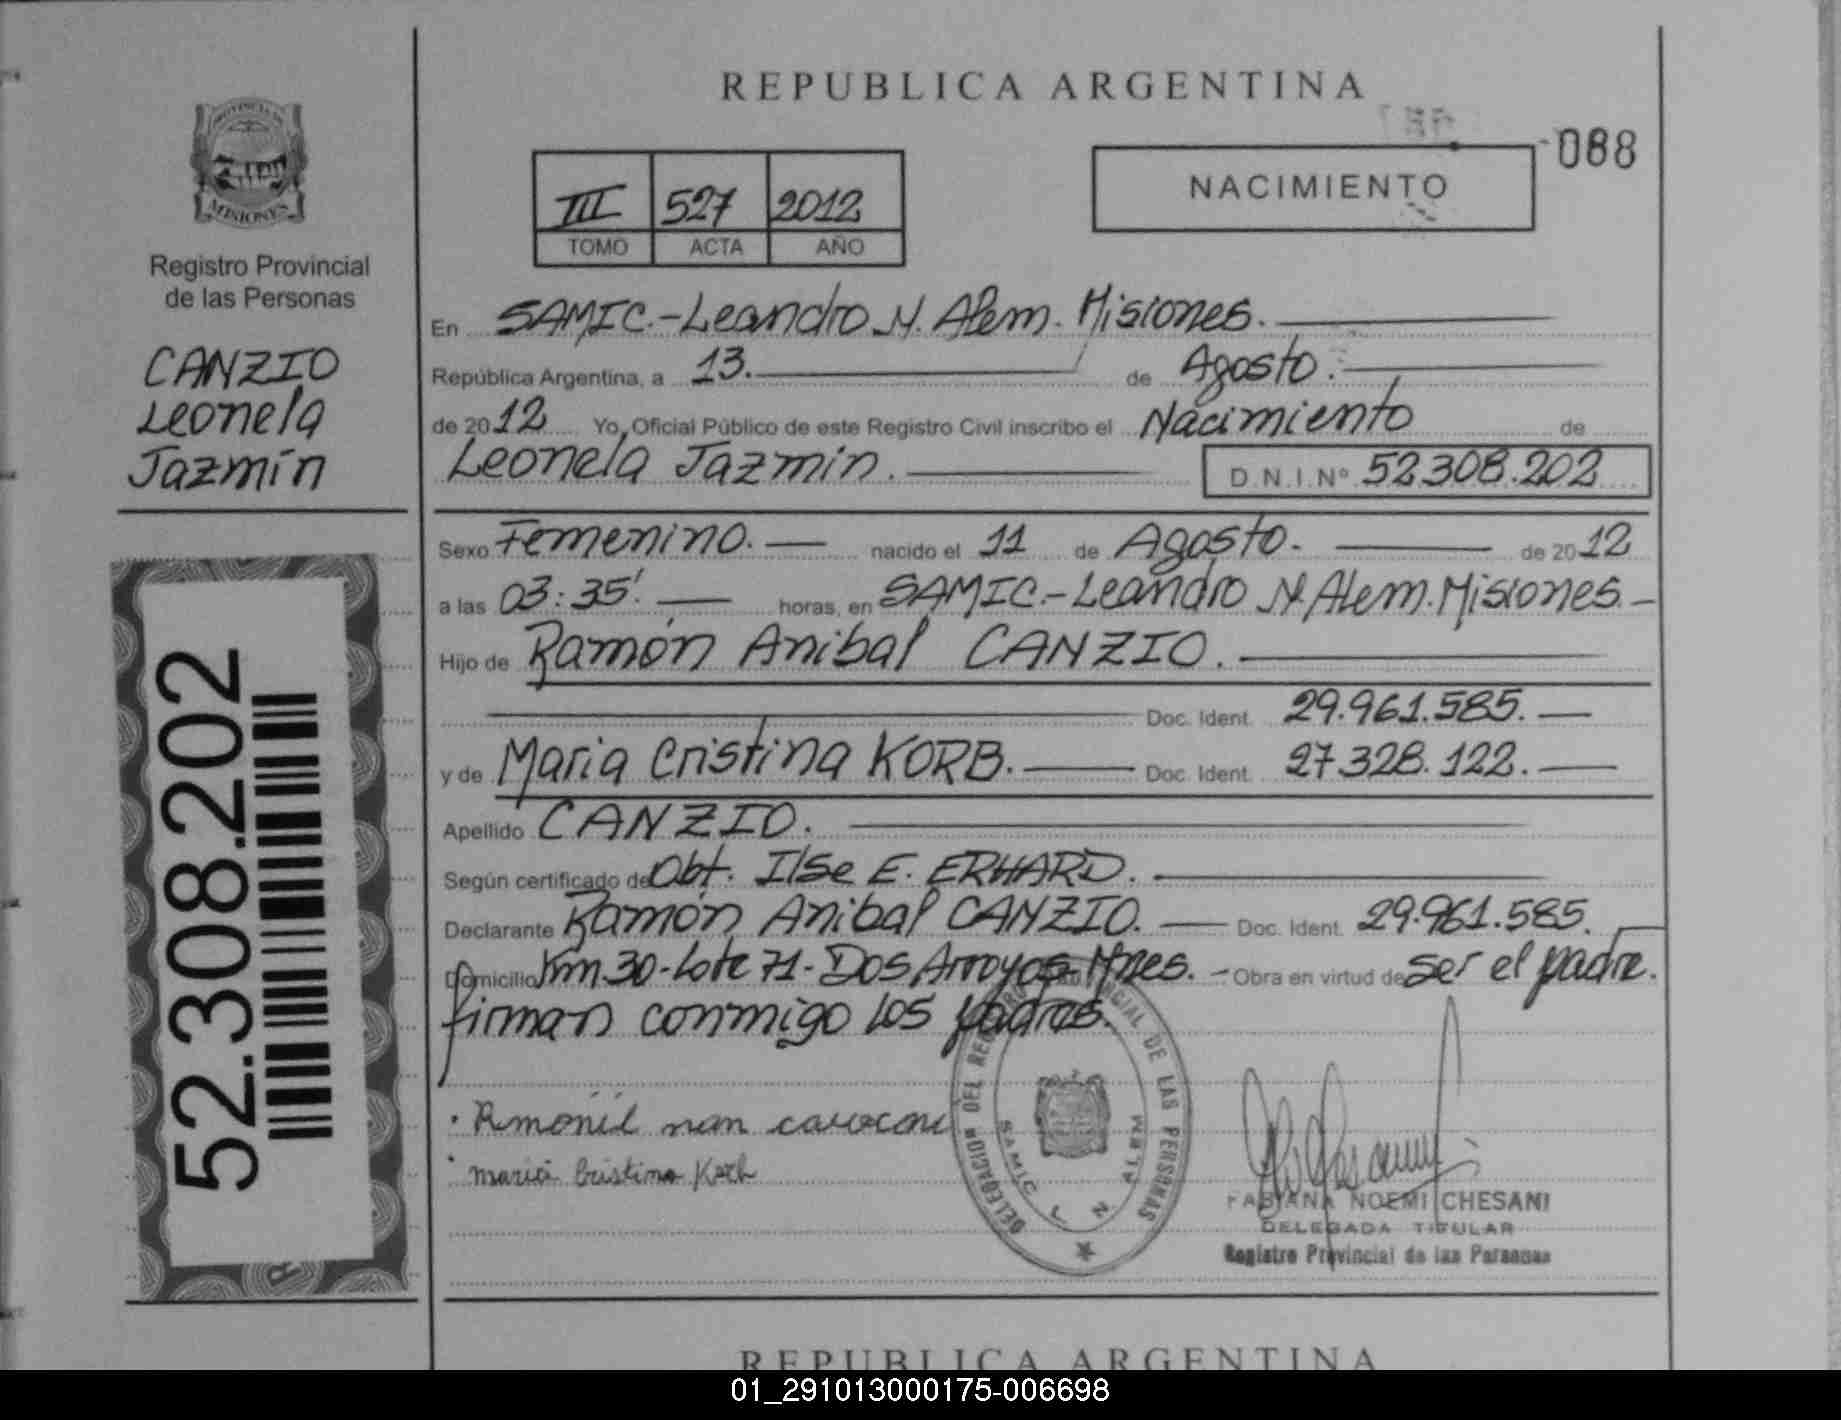 REPUBLICA ARGENTINA
088
NACIMIENTO
III 527 2012
TOMO ACTA AÑO
PROVINCIA DE
MISIONES
Registro Provincial
de las Personas
CANZIO
Leonela
Jazmín
52.308.202
En SAMIC.-Leandro N. Alem. Misiones.
República Argentina, a 13. de Agosto.
de 2012 Yo, Oficial Público de este Registro Civil inscribo el Nacimiento de
Leonela Jazmín. D.N.I.Nº 52.308.202
Sexo Femenino. nacido el 11 de Agosto. de 2012
a las 03:35' horas, en SAMIC.-Leandro N. Alem. Misiones.
Hijo de Ramón Anibal CANZIO.
Doc. Ident. 29.961.585.
y de Maria Cristina KORB. Doc. Ident. 27.328.122.
Apellido CANZIO.
Según certificado de Obt. Ilse E. ERHARD.
Declarante Ramón Anibal CANZIO. Doc. Ident. 29.961.585.
Domicilio Km 30-Lote 71-Dos Arroyos-Mnes. Obra en virtud de ser el padre.
firman conmigo los padres.
DELEGACION DEL REGISTRO PROVINCIAL DE LAS PERSONAS
SAMIC L. N. ALEM
maria Cristina Korb
FABIANA NOEMI CHESANI
DELEGADA TITULAR
Registro Provincial de las Personas
REPUBLICA ARGENTINA
01_291013000175-006698